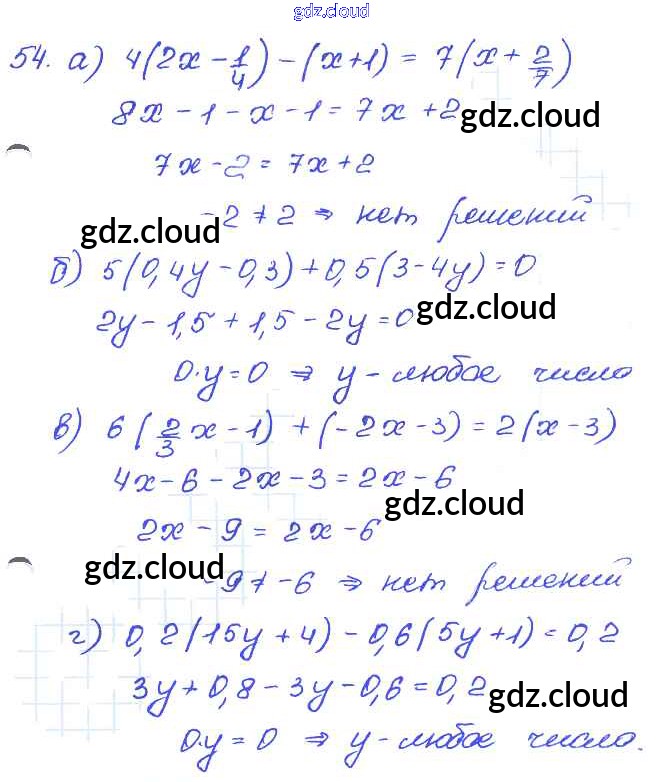 gdz.cloud
54. а) 4(2x - 1/4) - (x+1) = 7(x + 2/7)
8x - 1 - x - 1 = 7x + 2 gdz.cloud
7x - 2 = 7x + 2
gdz.cloud -2 ≠ 2 ⇒ нет решений
б) 5(0,4y - 0,3) + 0,5(3 - 4y) = 0
2y - 1,5 + 1,5 - 2y = 0 gdz.cloud
0·y = 0 ⇒ y - любое число
в) 6(2/3 x - 1) + (-2x - 3) = 2(x - 3)
4x - 6 - 2x - 3 = 2x - 6
gdz.cloud
2x - 9 = 2x - 6
gdz.cloud -9 ≠ -6 ⇒ нет решений
г) 0,2(15y + 4) - 0,6(5y + 1) = 0,2
3y + 0,8 - 3y - 0,6 = 0,2 gdz.cloud
0·y = 0 ⇒ y - любое число.